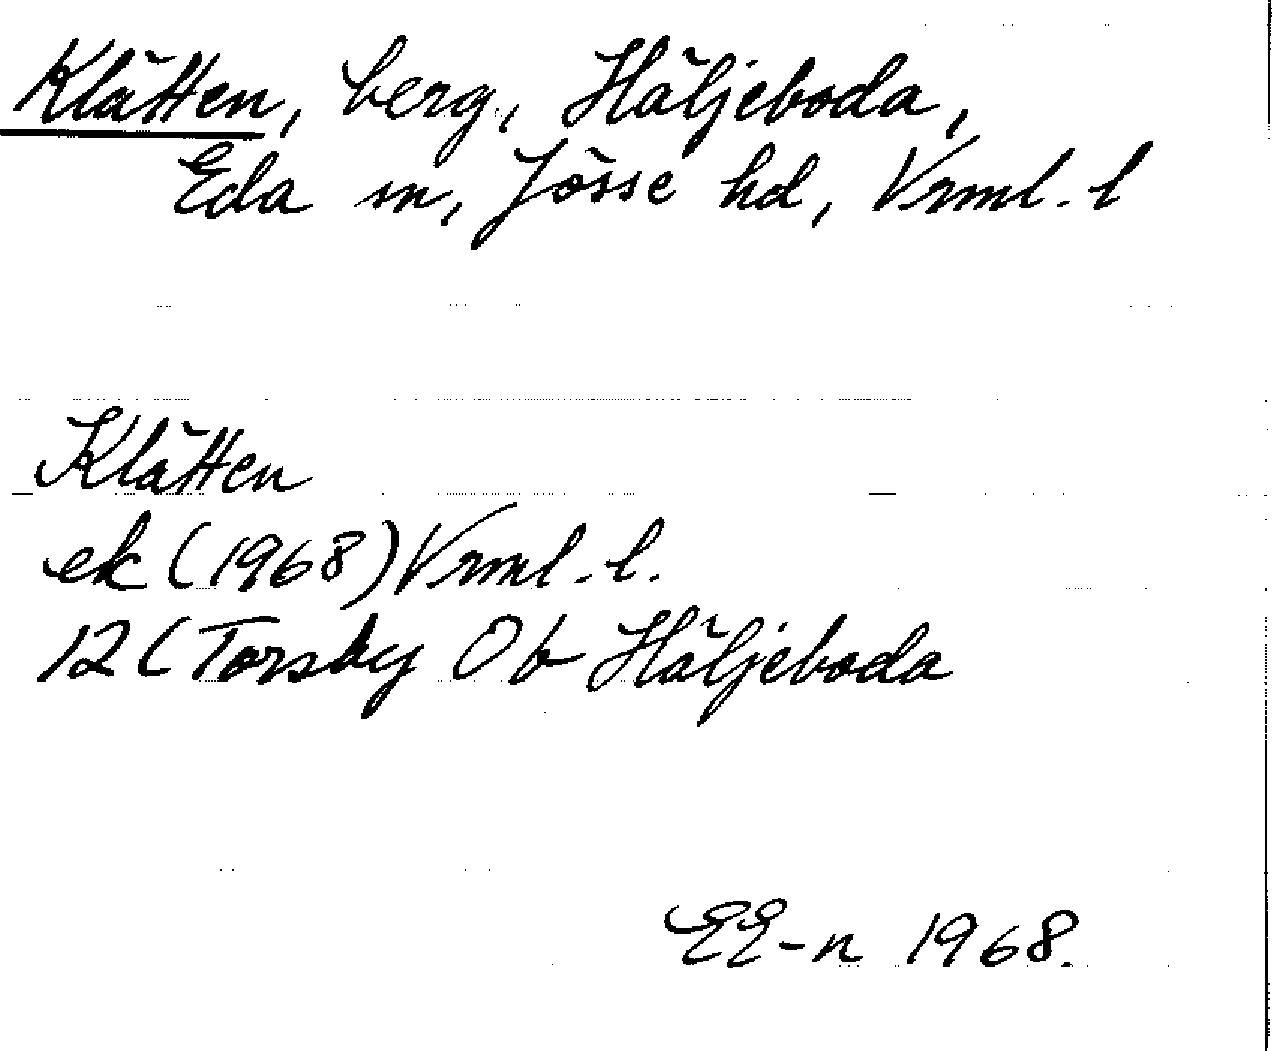 Klätten, berg, Häljeboda,
Eda sn, Jösse hd, Vrml. l
Klätten
ek (1968) Vrml. l.
12 C Torsby 0b Häljeboda
EE-n 1968.